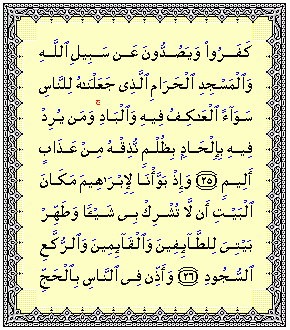 كَفَرُوا۟ وَيَصُدُّونَ عَن سَبِيلِ ٱللَّهِ
وَٱلْمَسْجِدِ ٱلْحَرَامِ ٱلَّذِى جَعَلْنَـٰهُ لِلنَّاسِ
سَوَآءً ٱلْعَـٰكِفُ فِيهِ وَٱلْبَادِ ۚ وَمَن يُرِدْ
فِيهِ بِإِلْحَادٍۭ بِظُلْمٍ نُّذِقْهُ مِنْ عَذَابٍ
أَلِيمٍ ٢٥ وَإِذْ بَوَّأْنَا لِإِبْرَٰهِيمَ مَكَانَ
ٱلْبَيْتِ أَن لَّا تُشْرِكْ بِى شَيْـًٔا وَطَهِّرْ
بَيْتِىَ لِلطَّآئِفِينَ وَٱلْقَآئِمِينَ وَٱلرُّكَّعِ
ٱلسُّجُودِ ٢٦ وَأَذِّن فِى ٱلنَّاسِ بِٱلْحَجِّ